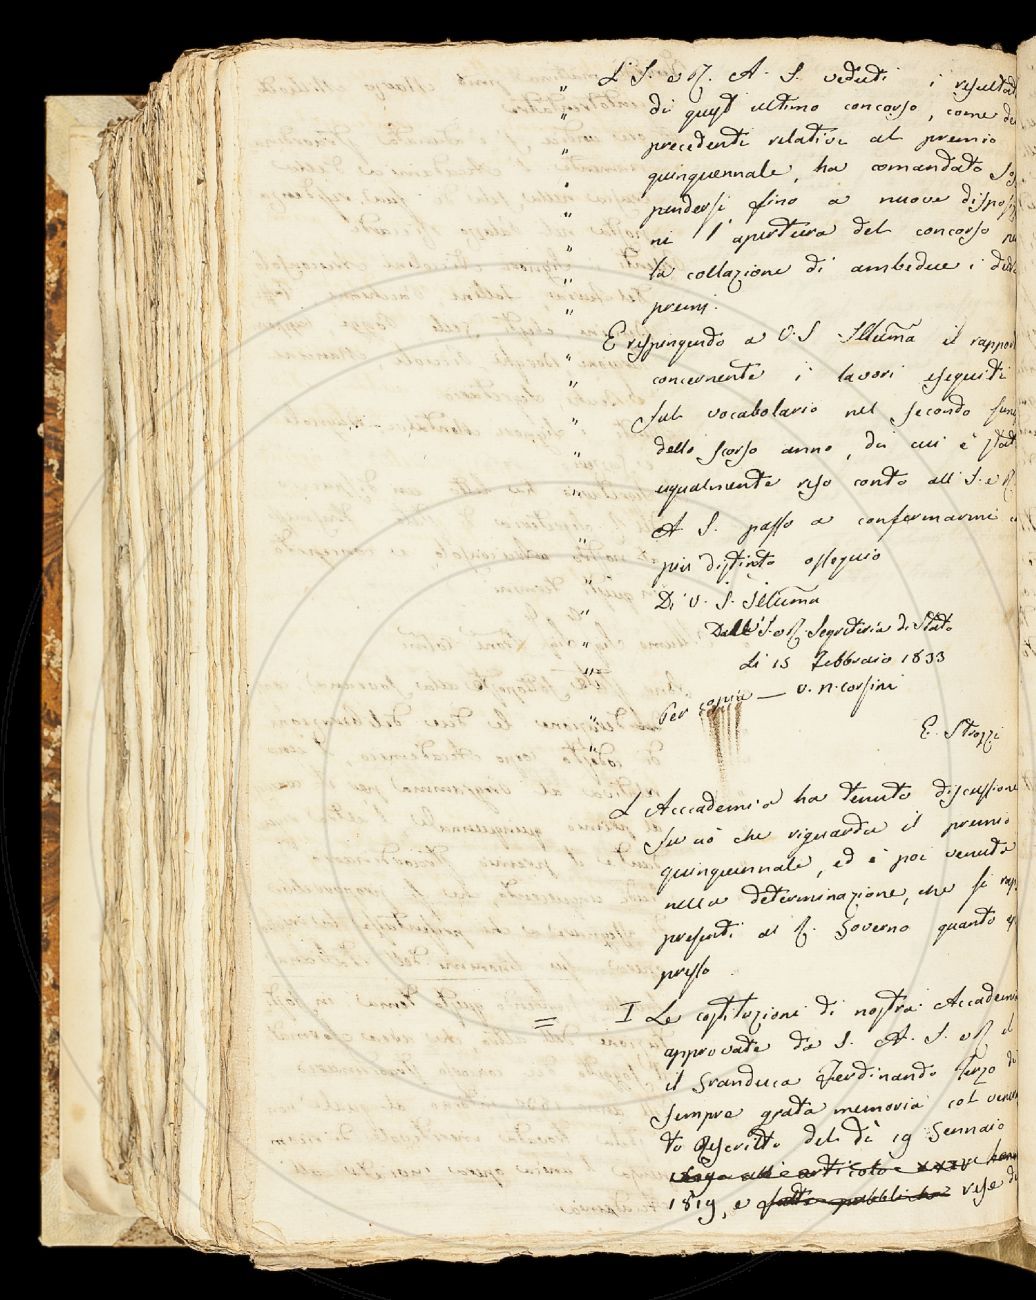 " L'I. e R. A. S. veduti i resultat
" di quest ultimo concorso, come de
" precedenti relativi al premio
" quinquennale, ha comandato Sos
" pendersi fino a nuove disposi
" ni l'apertura del concorso
" la collazione di ambedue i dett
" premj.
" E respingendo a V. S. Illuma il rappor
" concernente i lavori eseguiti
" sul vocabolario nel secondo
" dello scorso anno, da cui è stat
" egualmente reso conto all' I. e R.
" A. S. passo a confermarmi
" più distinto ossequio
" Di V. S. Illuma
" Dall' I. e R. Segreteria di Stato
" Li 15 Febbraio 1833
" Per copia — V. N. Corsini
" E. Strozzi
L'Accademia ha tenuto discussione
su ciò che riguarda il premio
quinquennale, ed è poi venuta
nella determinazione, che si rap
presenti al R. Governo quanto
presso
= I Le costituzioni di nostra Accademia
approvate da S. A. I. e R. il
il Granduca Ferdinando Terzo di
sempre grata memoria col venera
to Rescritto del dì 19 Gennaio
articolo XXIV
1819, e fatte pubbliche rese